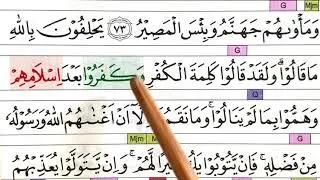 G Mjm
وَمَأْوَىٰهُمْ جَهَنَّمُ ۖ وَبِئْسَ الْمَصِيْرُ ﴿٧٣﴾ يَحْلِفُوْنَ بِاللّٰهِ
G
مَا قَالُوْا ۗ وَلَقَدْ قَالُوْا كَلِمَةَ الْكُفْرِ وَكَفَرُوْا بَعْدَ اِسْلَامِهِمْ
Q
وَهَمُّوْا بِمَا لَمْ يَنَالُوْا ۚ وَمَا نَقَمُوْٓا اِلَّآ اَنْ اَغْنٰىهُمُ اللّٰهُ وَرَسُوْلُهٗ
G G Mjm
مِنْ فَضْلِهٖ ۚ فَاِنْ يَّتُوْبُوْا يَكُ خَيْرًا لَّهُمْ ۚ وَاِنْ يَّتَوَلَّوْا يُعَذِّبْهُمُ